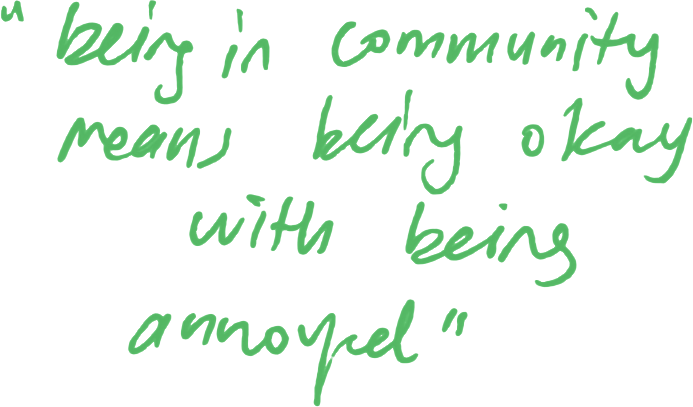 "being in community
means being okay
with being
annoyed"